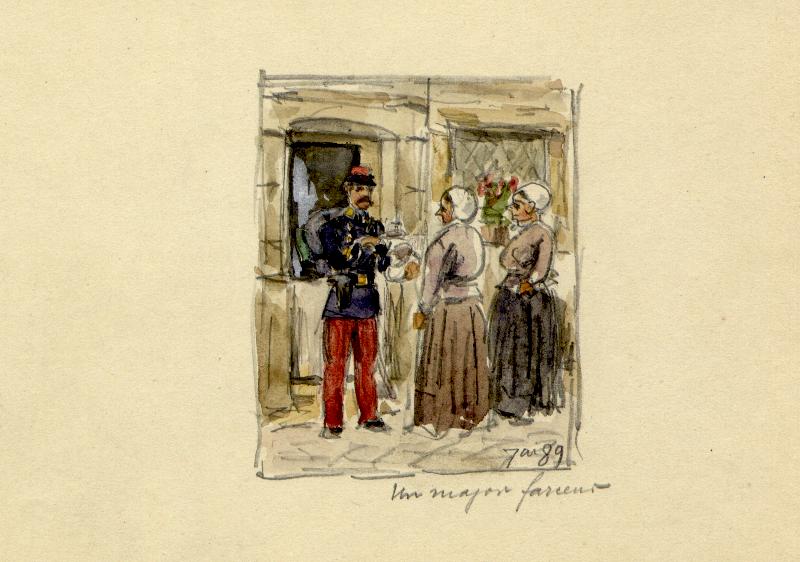 7 av 89
Un major farceur